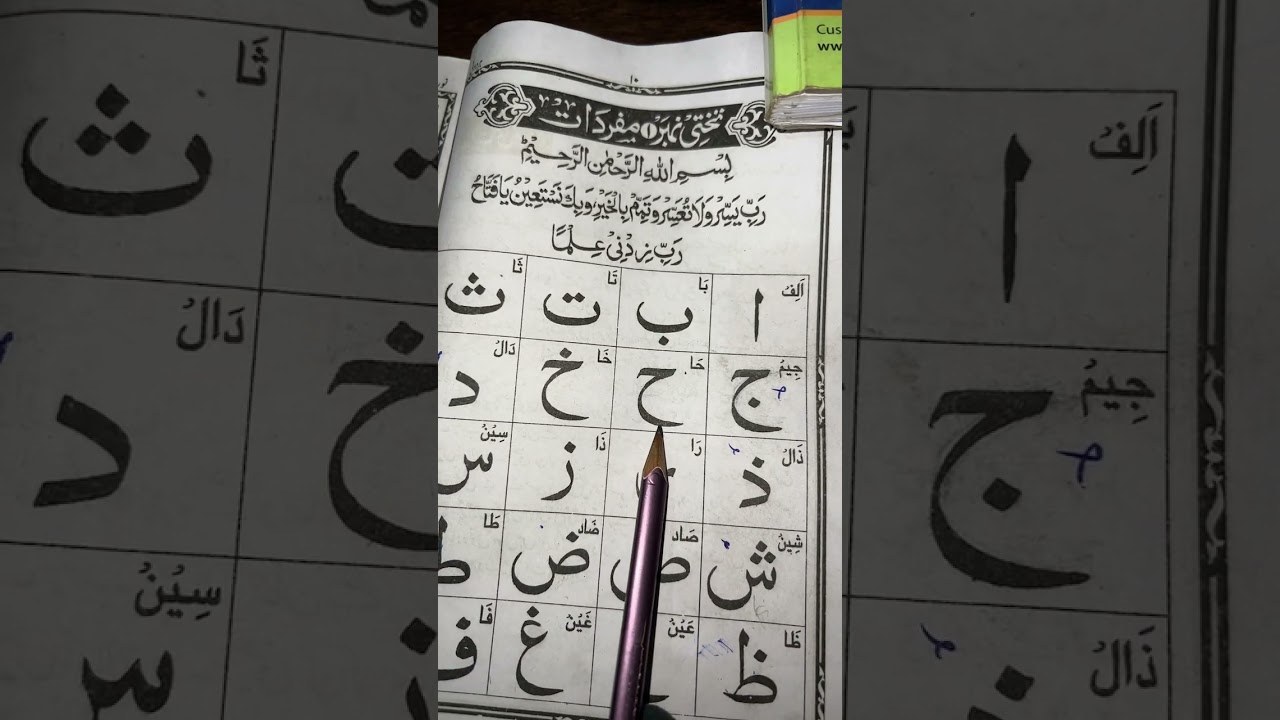 ۱۰
تختی نمبر ۱ مفردات
بِسْمِ اللهِ الرَّحْمٰنِ الرَّحِيْمِ
رَبِّ يَسِّرْ وَلَا تُعَسِّرْ وَتَمِّمْ بِالْخَيْرِ وَبِكَ نَسْتَعِيْنُ يَا فَتَّاحُ
رَبِّ زِدْنِيْ عِلْمًا
اَلِفْ بَا تَا ثَا
ا ب ت ث
جِيْمْ حَا خَا دَالْ
ج ح خ د
ذَالْ رَا زَا سِيْنْ
ذ ر ز س
شِيْنْ صَادْ ضَادْ طَا
ش ص ض ط
ظَا عَيْنْ غَيْنْ فَا
ظ غ ف
Cus
ww